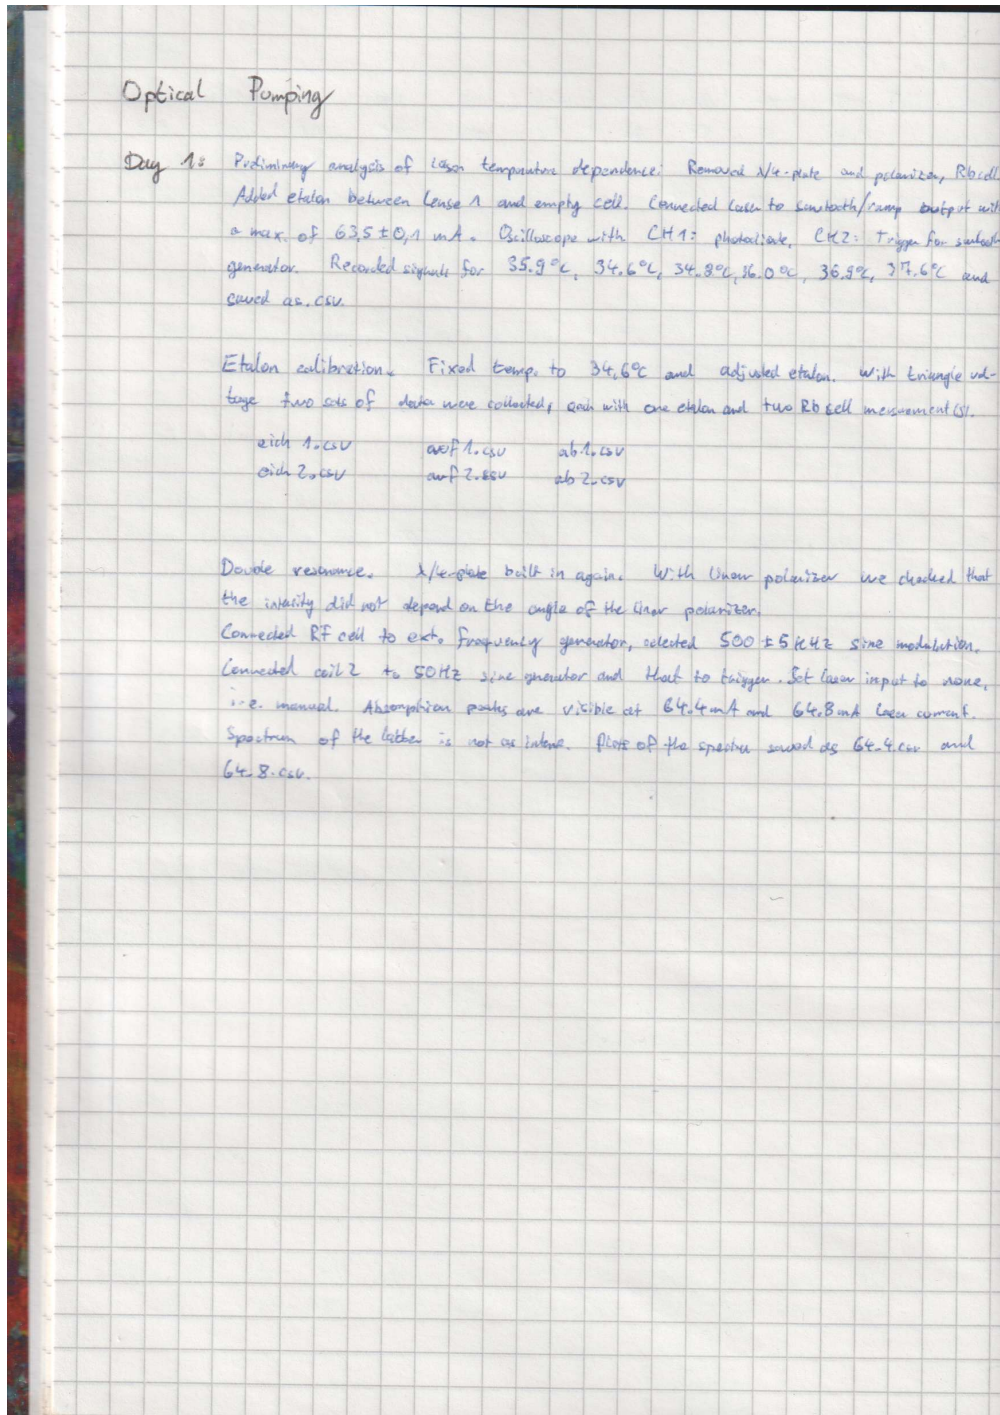 Optical Pumping
Day 1: Preliminary analysis of Laser temperature dependence: Removed λ/4-plate and polarizer, Rb cell.
Added etalon between Lense 1 and empty cell. Connected laser to sawtooth/ramp output with
a max. of 63,5 ± 0,1 mA. Oscilloscope with CH1: photodiode, CH2: Trigger for sawtooth
generator. Recorded signals for 35.9°C, 34.6°C, 34.8°C, 36.0°C, 36.9°C, 37.6°C and
saved as .csv.
Etalon calibration. Fixed temp. to 34,6°C and adjusted etalon. With triangle vol-
tage two sets of data were collected, each with one etalon and two Rb cell measurement(s).
eich 1.csv auf 1.csv ab 1.csv
eich 2.csv auf 2.csv ab 2.csv
Double resonance. λ/4-plate built in again. With linear polarizer we checked that
the intensity did not depend on the angle of the linear polarizer.
Connected RF cell to ext. frequency generator, selected 500 ± 5 kHz sine modulation.
Connected coil 2 to 50Hz sine generator and that to trigger. Set laser input to none,
i.e. manual. Absorption peaks are visible at 64.4mA and 64.8mA laser current.
Spectrum of the latter is not as intense. Plots of the spectra saved as 64.4.csv and
64.8.csv.